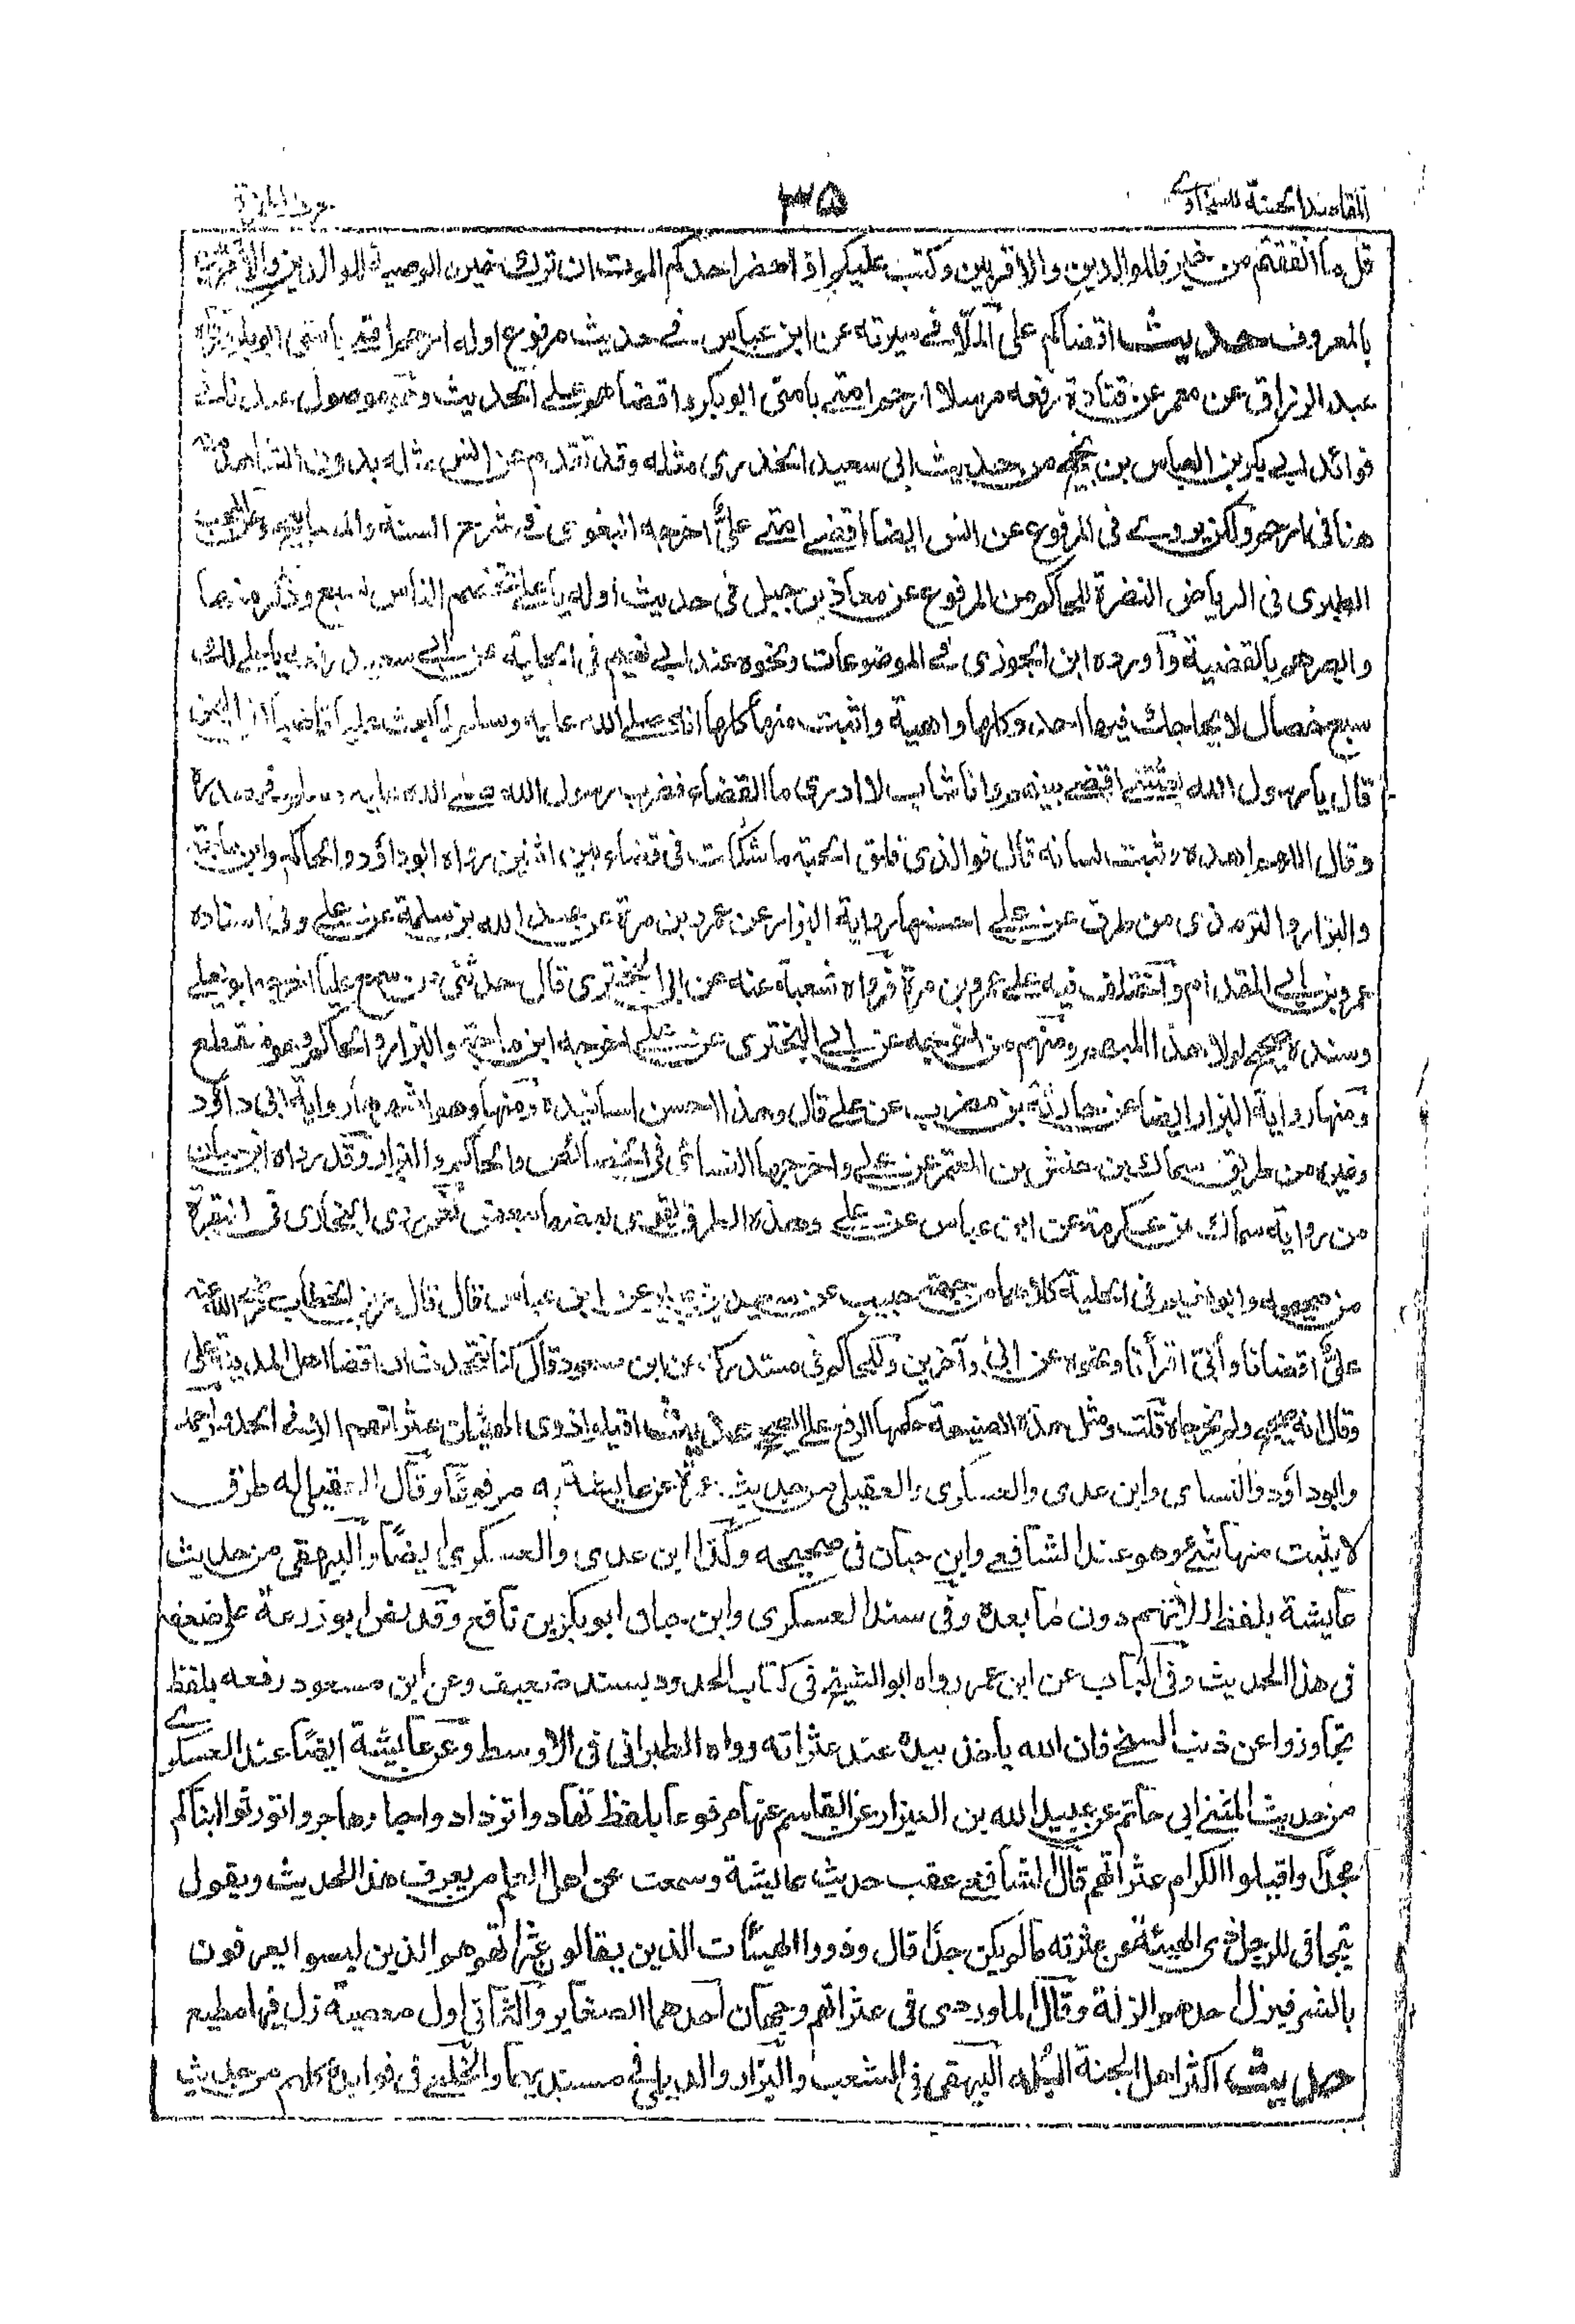 المقاصد الحسنة للسخاوي ٣٥ حرف الهمزة
قل ما انفقتم من خير فللوالدين والاقربين وكتب عليكم اذا حضر احدكم الموت ان ترك خيرن الوصية للوالدين والاقربين
بالمعروف حديث اقضاكم على الملا في سيرته عن ابن عباس في حديث مرفوع اوله ارحم امتي بامتي ابوبكر
عبد الرزاق عن معمر عن قتادة رفعه مرسلا ارحم امتي بامتي ابوبكر واقضاهم علي الحديث وهو موصول عندنا في
فوائد ابي بكر بن العباس بن نجيح من حديث ابي سعيد الخدري مثله وقد تقدم عن انس مثله بدون الشاهد منه
هنا في ارحم ولكن يروي في المرفوع عن انس ايضا اقضى امتي علي اخرجه البغوى في شرح السنة والمصابيح والمحب
الطبرى فى الرياض النضرة للحاكم من المرفوع عن معاذ بن جبل فى حديث اوله يا علي تخصم الناس بسبع وذكر منها
وابصرهم بالقضية وأورده ابن الجوزى في الموضوعات ونحوه عند ابي نعيم فى الحلية عن ابي سعيد رفعه يا علي لك
سبع خصال لا يحاجك فيها احد وكلها واهية واثبت منها كلها انه صلى الله عليه وسلم لما بعث عليا قاضيا الى اليمن
قال يا رسول الله بعثتني اقضي بينهم وانا شاب لا ادرى ما القضاء فضرب رسول الله صلى الله عليه وسلم في صدره
وقال اللهم اهده وثبت لسانه قال فوالذى فلق الحبة ما شككت فى قضاء بين اثنين رواه ابو داؤد والحاكم وابن ماجة
والبزار والترمذى من طرق عن علي احسنها رواية البزار عن عمرو بن مرة عن عبد الله بن سلمة عن علي وفى اسناده
عمرو بن ابي المقدام واختلف فيه على عمرو بن مرة فرواه شعبة عنه عن ابى البخترى قال حدثنى من سمع عليا اخرجه ابو يعلي
وسنده صحيح لولا هذا المبهم ومنهم من اخرجه عن ابي البخترى عن علي اخرجه ابن ماجة والبزار والحاكم وهو منقطع
ومنها رواية البزار ايضا عن حارثة بن مضرب عن علي قال وهذا احسن اسانيده ومنها وهو اشهرها رواية ابى داؤد
وغيره من طريق سماك بن حنش بن المعتمر عن علي واخرجها النسائى فى الخصائص والحاكم والبزار وقد رواه ابن حبان
من رواية سماك عن عكرمة عن ابن عباس عن علي وهذه الطرق يقوى بعضها بعض وروى البخارى فى البقرة
من صحيحه وابو نعيم فى الحلية كلاهما من جهة حبيب عن سعيد بن جبير عن ابن عباس قال قال عمر بن الخطاب رضي الله عنه
علي اقضانا وأبي اقرأنا ونحوه عن ابيّ وآخرين وللحاكم فى مستدركه عن ابن مسعود قال كنا نتحدث ان اقضا اهل المدينة علي
وقال انه صحيح ولم يخرجاه قلت ومثل هذه الصيغة حكمها الرفع علي الصحيح حديث اقيلوا ذوى الهيئات عثراتهم الا في الحدود احمد
وابو داؤد والنساى وابن عدى والعسكرى والعقيلى من حديث عمرة عن عايشة به مرفوعًا وقال العقيلي له طرق
لا يثبت منها شئ وهو عند الشافعي وابن حبان فى صحيحه وكذا ابن عدى والعسكرى ايضًا والبيهقى من حديث
عايشة بلفظ زلاتهم دون ما بعده وفى سند العسكرى وابن حبان ابو بكر بن نافع وقد نص ابو زرعة على ضعفه
فى هذا الحديث وفى الباب عن ابن عمر رواه ابو الشيخ فى كتاب الحدود بسند ضعيف وعن ابن مسعود رفعه بلفظ
تجاوزوا عن ذنب السخي فان الله ياخذ بيده عند عثراته رواه الطبرانى فى الاوسط وعن عايشة ايضًا عند العسكري
من حديث المثنى ابى حاتم عن عبيد الله بن العيزار عن القاسم عنها مرفوعا بلفظ تهادوا تزدادوا حبا وهاجروا تورثوا ابناكم
مجدًا واقيلوا الكرام عثراتهم قال الشافعي عقب حديث عايشة وسمعت من اهل العلم من يعرف هذا الحديث ويقول
يتجافى للرجل ذى الهيئة عن عثرته ما لم يكن حدًا قال وذووا الهيئات الذين يقالون عثراتهم هم الذين ليسوا يعرفون
بالشر فيزل احدهم الزلة وقال الماوردى فى عثراتهم وجهان احدهما الصغاير والثانى اول معصية زل فيها مطيع
حديث اكثر اهل الجنة البُله البيهقى فى الشعب والبزار والديلمي فى مسنديهما والخلعي فى فوايده كلهم من حديث